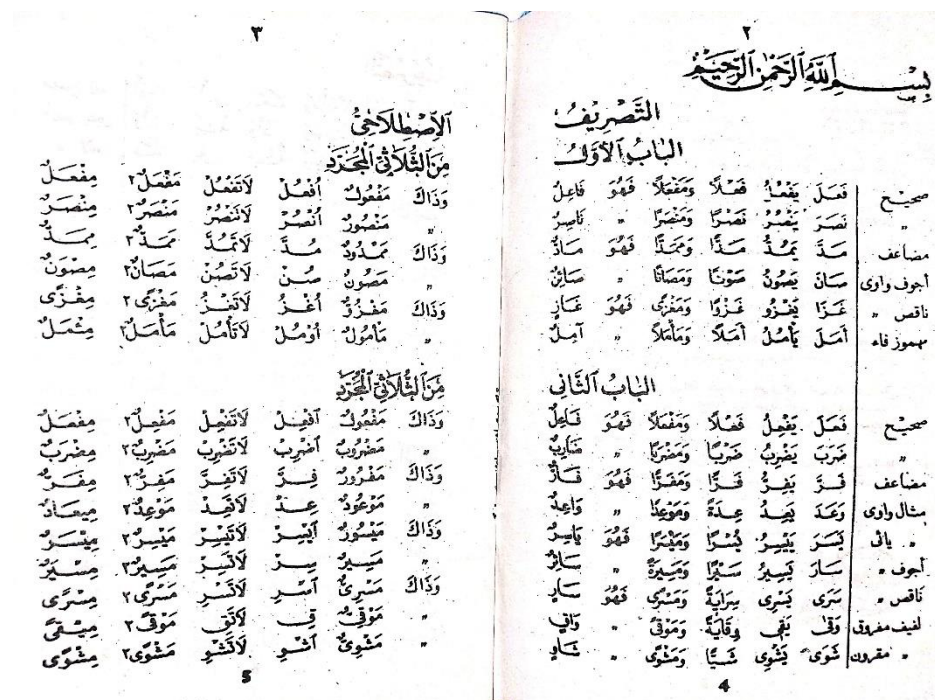 ٢
بِسْمِ اللّٰهِ الرَّحْمٰنِ الرَّحِيْمِ
التَّصْرِيْفُ
الْبَابُ الْأَوَّلُ
صحيح فَعَلَ يَفْعُلُ فَعْلًا وَمَفْعَلًا فَهُوَ فَاعِلٌ
" نَصَرَ يَنْصُرُ نَصْرًا وَمَنْصَرًا " نَاصِرٌ
مضاعف مَدَّ يَمُدُّ مَدًّا وَمَمَدًّا فَهُوَ مَادٌّ
أجوف واوى صَانَ يَصُوْنُ صَوْنًا وَمَصَانًا " صَائِنٌ
ناقص " غَزَا يَغْزُو غَزْوًا وَمَغْزًى فَهُوَ غَازٍ
مهموز فاء أَمَلَ يَأْمُلُ أَمَلًا وَمَأْمَلًا " آمِلٌ
الْبَابُ الثَّانِى
صحيح فَعَلَ يَفْعِلُ فَعْلًا وَمَفْعَلًا فَهُوَ فَاعِلٌ
" ضَرَبَ يَضْرِبُ ضَرْبًا وَمَضْرَبًا " ضَارِبٌ
مضاعف فَرَّ يَفِرُّ فَرًّا وَمَفَرًّا فَهُوَ فَارٌّ
مثال واوى وَعَدَ يَعِدُ عِدَةً وَمَوْعِدًا " وَاعِدٌ
" يائى يَسَرَ يَيْسِرُ يُسْرًا وَمَيْسَرًا فَهُوَ يَاسِرٌ
أجوف " سَارَ يَسِيْرُ سَيْرًا وَمَسِيْرَةً " سَائِرٌ
ناقص " سَرَى يَسْرِى سِرَايَةً وَمَسْرًى فَهُوَ سَارٍ
لفيف مفروق وَقَى يَقِى وِقَايَةً وَمَوْقًى " وَاقِي
" مقرون شَوَى يَشْوِى شَيًّا وَمَشْوًى " شَاوٍ
4
٣
الْاِصْطِلَاحِىُّ
مِنَ الثُّلَاثِىِّ الْمُجَرَّدِ
وَذَاكَ مَفْعُوْلٌ اُفْعُلْ لَاتَفْعُلْ مَفْعَلٌ٢ مِفْعَلٌ
" مَنْصُوْرٌ اُنْصُرْ لَاتَنْصُرْ مَنْصَرٌ٢ مِنْصَرٌ
وَذَاكَ مَمْدُوْدٌ مُدَّ لَاتَمُدَّ مَمَدٌّ٢ مِمَدٌّ
" مَصُوْنٌ صُنْ لَاتَصُنْ مَصَانٌ٢ مِصْوَنٌ
وَذَاكَ مَغْزُوٌّ اُغْزُ لَاتَغْزُ مَغْزًى٢ مِغْزًى
" مَأْمُوْلٌ اُوْمُلْ لَاتَأْمُلْ مَأْمَلٌ٢ مِئْمَلٌ
مِنَ الثُّلَاثِىِّ الْمُجَرَّدِ
وَذَاكَ مَفْعُوْلٌ اِفْعِلْ لَاتَفْعِلْ مَفْعِلٌ٢ مِفْعَلٌ
" مَضْرُوْبٌ اِضْرِبْ لَاتَضْرِبْ مَضْرِبٌ٢ مِضْرَبٌ
وَذَاكَ مَفْرُوْرٌ فِرَّ لَاتَفِرَّ مَفِرٌّ٢ مِفَرٌّ
" مَوْعُوْدٌ عِدْ لَاتَعِدْ مَوْعِدٌ٢ مِيْعَادٌ
وَذَاكَ مَيْسُوْرٌ اِيْسِرْ لَاتَيْسِرْ مَيْسِرٌ٢ مِيْسَرٌ
" مَسِيْرٌ سِرْ لَاتَسِرْ مَسِيْرٌ٣ مِسْيَرٌ
وَذَاكَ مَسْرِىٌّ اِسْرِ لَاتَسْرِ مَسْرًى٢ مِسْرًى
" مَوْقِىٌّ قِ لَاتَقِ مَوْقًى٢ مِيْقًى
" مَشْوِىٌّ اِشْوِ لَاتَشْوِ مَشْوًى٢ مِشْوًى
5